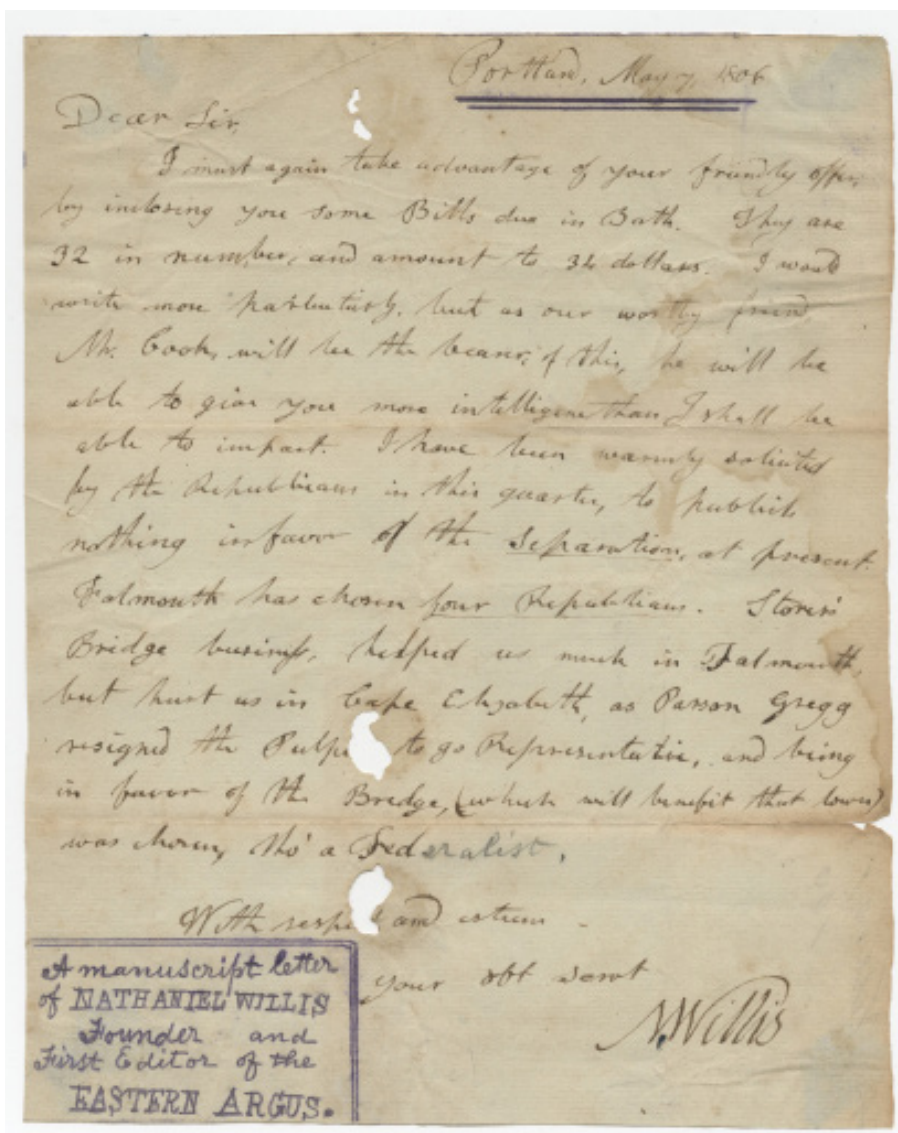 Portland, May 7, 1806
Dear Sir,
I must again take advantage of your friendly offer,
by inclosing you some Bills due in Bath. They are
32 in number, and amount to 34 dollars. I would
write more particularly, but as our worthy friend
Mr. Cook, will be the bearer of this, he will be
able to give you more intelligence than I shall be
able to impart. I have been warmly solicited
by the Republicans in this quarter, to publish
nothing in favor of the Separation, at present.
Falmouth has chosen four Republicans. Storer's
Bridge business, helped us much in Falmouth,
but hurt us in Cape Elizabeth, as Parson Gregg
resigned the Pulpi to go Representative, and being
in favor of the Bridge, (which will benefit that town)
was chosen, tho' a Federalist,
With respe and esteem
your obt servt
N. Willis
A manuscript letter
of NATHANIEL WILLIS
Founder and
First Editor of the
EASTERN ARGUS.